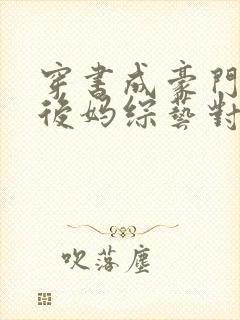 穿書成豪門
後媽綜藝對
吹落塵